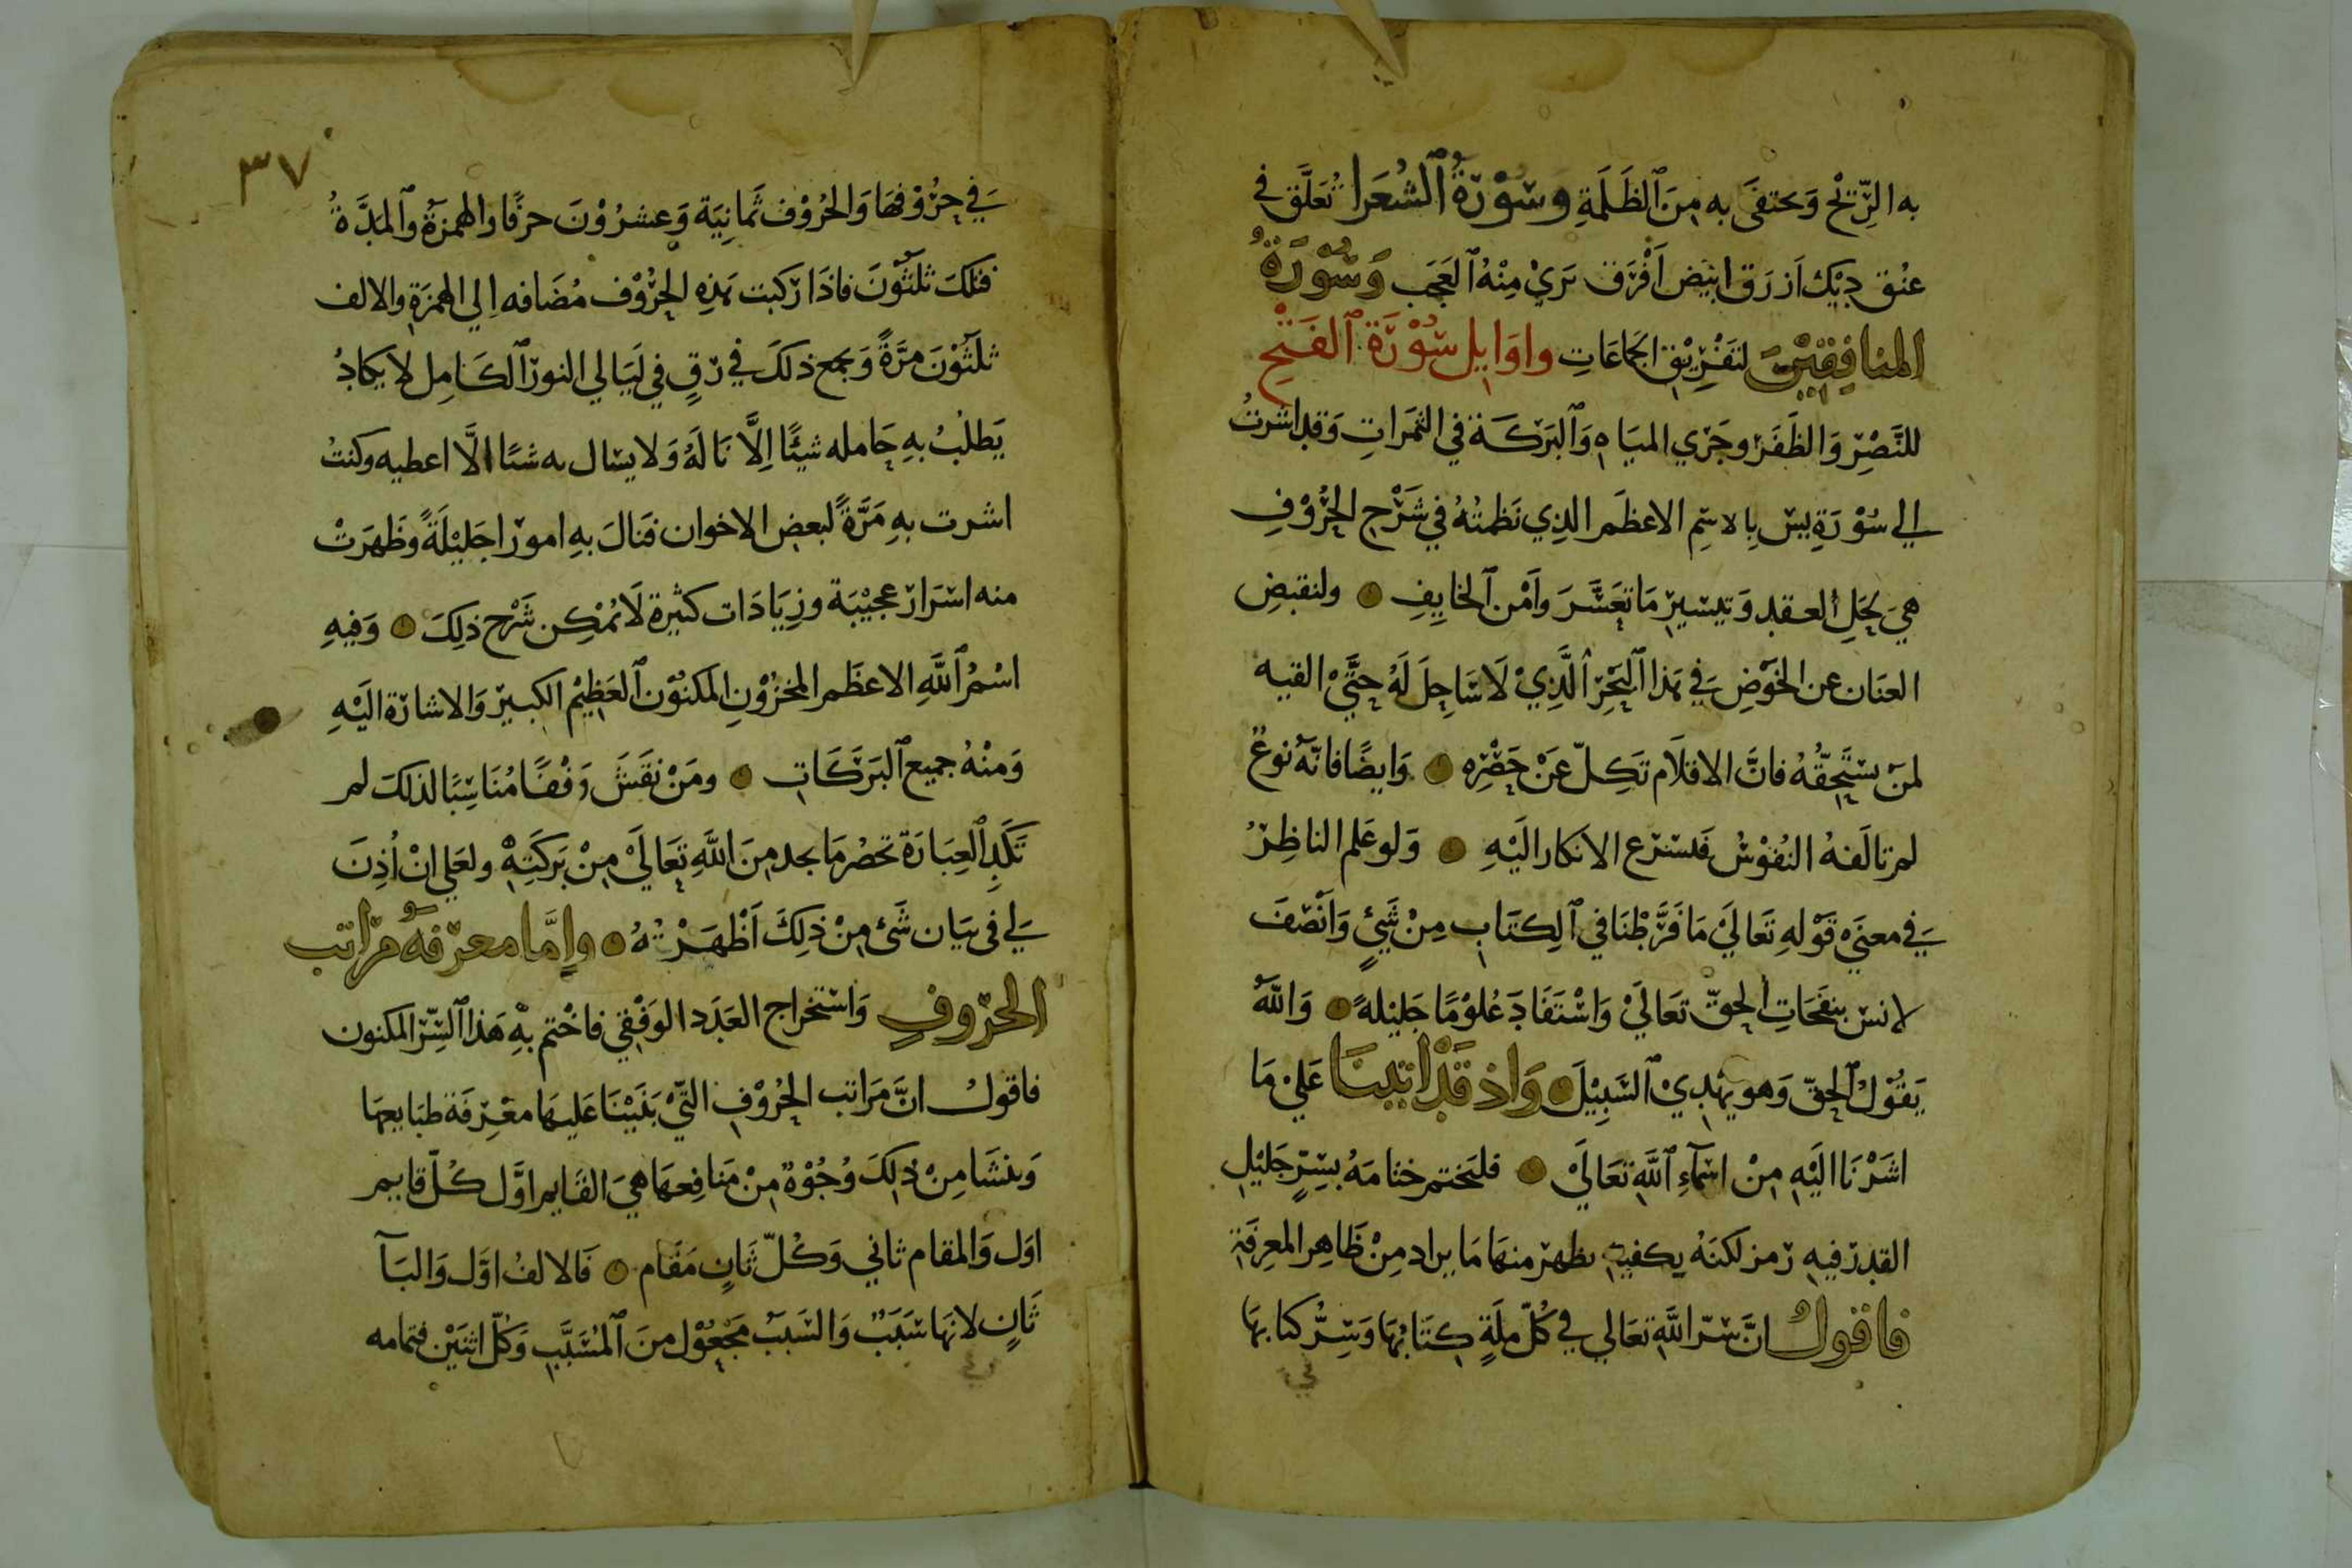 به الرِّيح وَيختفَى به مِنَ ٱلظَلَمَةِ وَسُوْرَةُ ٱلشُعَرا تُعَلَّق في
عُنُق دِيْك اَزرَق ابيَض اَفْرَق تَرَيْ مِنْهُ ٱلعَجَب وَسُوْرَةُ
المنافِقِيْنَ لتَفْرِيْقِ الجَمَاعَاتِ واوَايِل سُوْرَةُ ٱلفَتْحِ
للنَّصْرِ وَالظَفَر وجَرْي المِيَاهِ وَٱلبَرَكَة في الثمَراتِ وَقد اشرتُ
الي سُوْرَةِ يسَ بِالاسِم الاعظَم الذِي نَظمتُهُ في شَرْح الحُرُوْفِ
هِيَ لحَلِ ٱلعقد وَتيسيْرِ مَا تعَسَّرَ واَمْن ٱلخايِفِ ولنقبضِ
العنَان عن الخَوْضِ في هَذا ٱلبَحْر ٱلَّذِيْ لَاسَاحِلَ لَهُ حتَّيْ القيه
لمنْ يستَحِقُّهُ فانَّ الاقلَام تَكِلّ عَنْ حَصْرِهِ وَايضًا فانّهُ نوعٌ
لم تالَفهُ النُفوْسُ فَيسرع الانكار اليَهِ وَلو عَلم الناظِرُ
في معنَيْ قَوْلهِ تَعَاليَ مَا فَرَّطْنَا في ٱلكِتَابِ مِنْ شَيْءٍ وَاَنْصَفَ
لانسَ بنفحَاتِ ٱلحقّ تعَاليَ وَاسْتَفَادَ عُلوْمًا جَليْلةً وَاللَّهُ
يَقُوْلُ ٱلحَقّ وَهو يَهْدِيْ ٱلسَّبِيْلَ وَاذ قَدْ اتينَا عَليْ مَا
اشَرْنَا اليَهِ مِنْ اسْمَآءِ ٱللَّهِ تعَاليَ فليَختم ختامَهُ بسِرٍّ جَليْلِ
القدر فيهِ رَمز لكنّهُ يكفي يظهر منهَا مَا يراد مِنْ ظَاهِر المعرِفَةِ
فاقولُ انَّ سَرّ اللَّهِ تعَالي في كُلّ ملةٍ كِتَابُهَا وَسِرُّ كتابهَا
في حرُوْفهَا وَالحُرُوْف ثمَانِيَة وَعِشرُوْنَ حرْفًا والهمزةُ وَٱلمَدَّةُ
فتلكَ ثلثُوْنَ فاذَا ركبت هَذهِ الحرُوْف مُضَافه الي الهمزَةِ والالف
ثلثُوْنَ مرَّةً وَيجمع ذلكَ في رَقٍ في لَيَالي النور ٱلكَامِل لا يكادُ
يَطلبُ بهِ حَامله شيئًا اِلَّا نَالَهُ وَلا يسَال به شيًا الَّا اعطيه وكنتُ
اشرت بهِ مَرَّةً لبعض الاخوان فنَالَ بهِ امورًا جَليْلَةً وظَهرَتْ
منه اسْرَار عجيْبَة وزِيَادَات كثيرة لَا يُمْكِن شَرْح ذلِكَ وَفيْهِ
اسْمُ ٱللَّهِ الاعظَم المخزُوْنِ المَكنُوْن ٱلعَظِيْم الكبيْر وَالاشارَة اليَهِ
وَمنْهُ جميع ٱلبَرَكَاتِ ومَنْ نقَشَ وَفْقًا مُنَاسِبًا لذلكَ لم
تَكَدِ ٱلعِبَارَةُ تحْصُر مَا يجد مِنَ اللَّهِ تعَاليَ مِنْ بَركَتِهِ ولعَلي انْ اُذِنَ
لي في بَيَان شَيْ مِنْ ذلِكَ اَظْهَرْتهُ وامَّا معرفةُ مراتب
الحُرُوفِ وَاستخراج العَدَد الوَفْقي فاخْتم بهِ هَذا ٱلسِّرّ المكنون
فاقولُ انَّ مَرَاتب الحُرُوْفِ التيْ بَنَيْنَا عَليهَا معْرِفَة طبَايعهَا
وَينشَا مِنْ ذلِكَ وُجُوْهٌ مِنْ مَنَافِعهَا هيَ القَايم اوَّل كُلّ قايم
اوَل وَالمقام ثاني وَكُلّ ثَانٍ مَقَام فَالالفُ اوَّل وَالبَآ
ثَانٍ لانهَا سَبَبٌ وَالسَبَبُ مَجعُوْل منَ ٱلمُسَبَّبِ وَكُلّ اثنَيْن فتمامه
٣٧